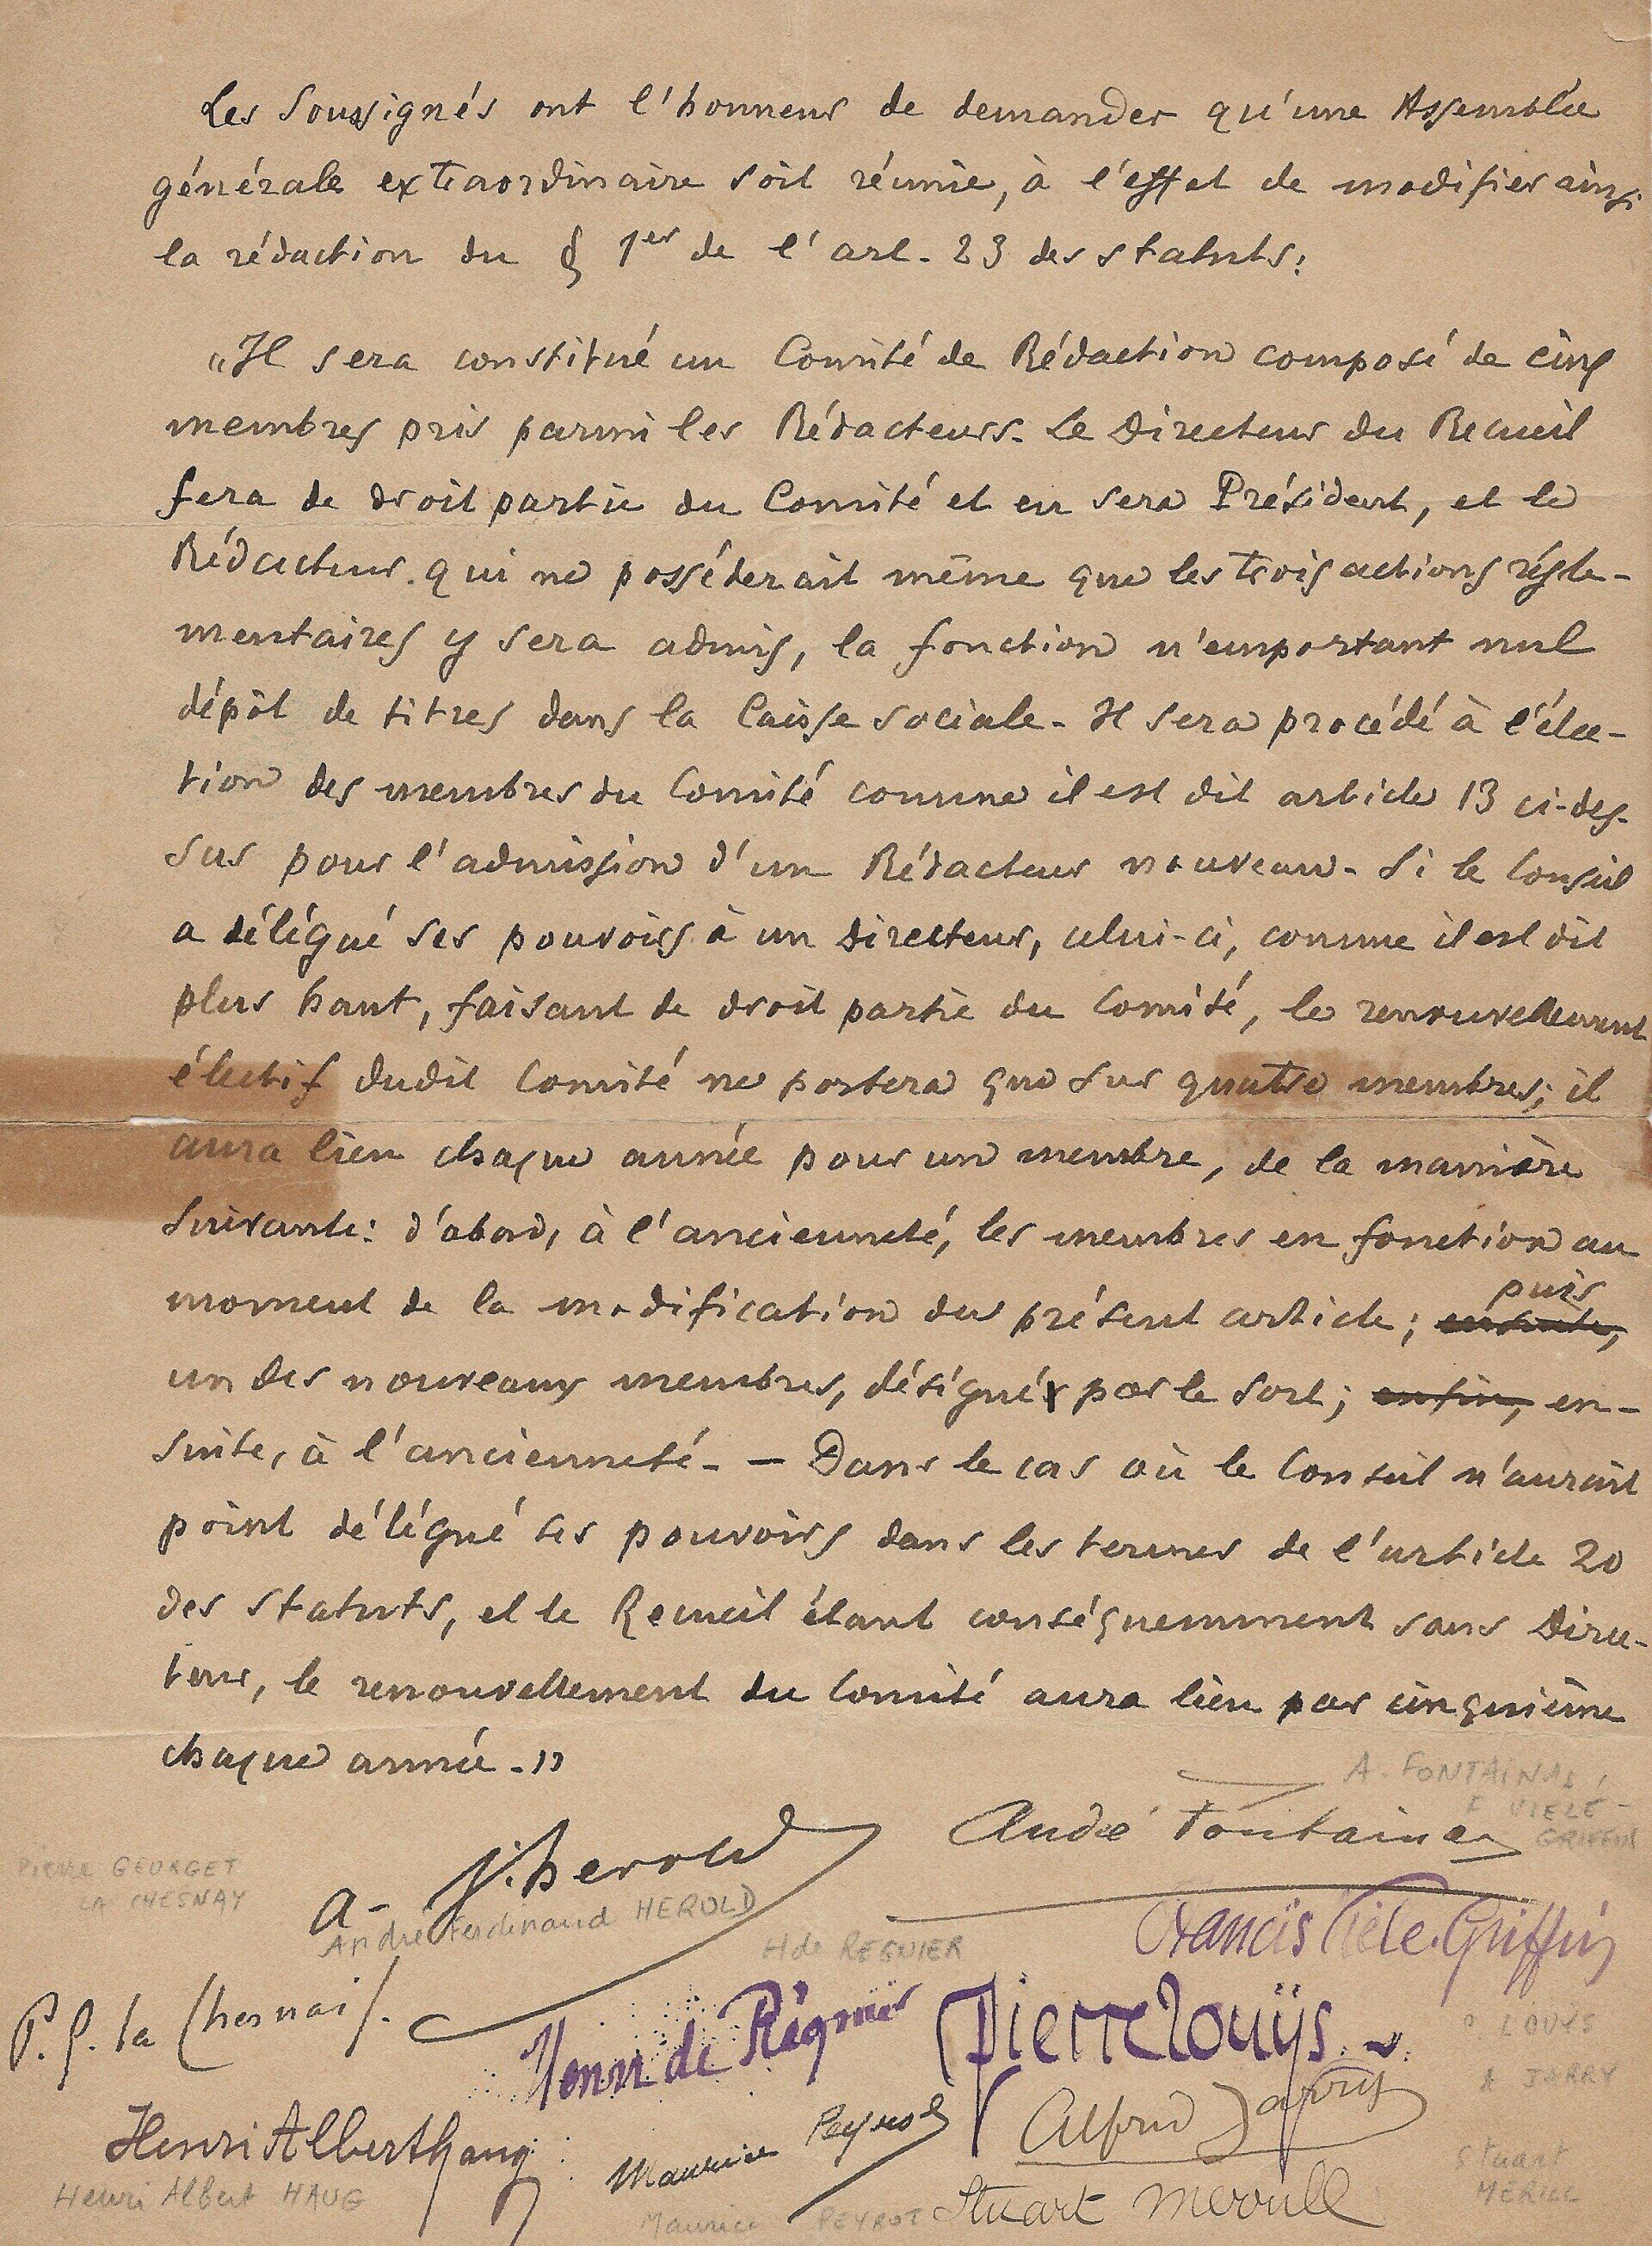 Les Soussignés ont l'honneur de demander qu'une Assemblée
générale extraordinaire soit réunie, à l'effet de modifier ainsi
la rédaction du § 1er de l'art. 23 des statuts:
"Il sera constitué un Comité de Rédaction composé de cinq
membres pris parmi les Rédacteurs. Le Directeur du Recueil
fera de droit partie du Comité et en sera Président, et le
Rédacteur qui ne posséderait même que les trois actions régle-
mentaires y sera admis, la fonction n'emportant nul
dépôt de titres dans la Caisse sociale. Il sera procédé à l'élec-
tion des membres du Comité comme il est dit article 13 ci-des-
sus pour l'admission d'un Rédacteur nouveau. Si le Conseil
a délégué ses pouvoirs à un Directeur, celui-ci, comme il est dit
plus haut, faisant de droit partie du Comité, le renouvellement
électif dudit Comité ne portera que sur quatre membres; il
aura lieu chaque année pour un membre, de la manière
suivante: d'abord, à l'ancienneté, les membres en fonction au
moment de la modification du présent article; ensuite, puis
un des nouveaux membres, désigné par le sort; enfin, en-
suite, à l'ancienneté. — Dans le cas où le Conseil n'aurait
point délégué ses pouvoirs dans les termes de l'article 20
des statuts, et le Recueil étant conséquemment sans Direc-
teur, le renouvellement du Comité aura lieu par cinquième
chaque année."
A. FONTAINAS
F VIELÉ-
GRIFFIN
André Fontainas
Pierre GEORGET
LA CHESNAY
A. F. Herold
André Ferdinand HEROLD
Francis Vielé-Griffin
H de REGNIER
P. G. la Chesnais.
Henri de Régnier
Pierre Louÿs
P. LOUYS
A JARRY
Alfred Jarry
Henri Albert Haug
Maurice Peyrot
Henri Albert HAUG
Stuart
MERILL
Maurice PEYROT
Stuart Merrill